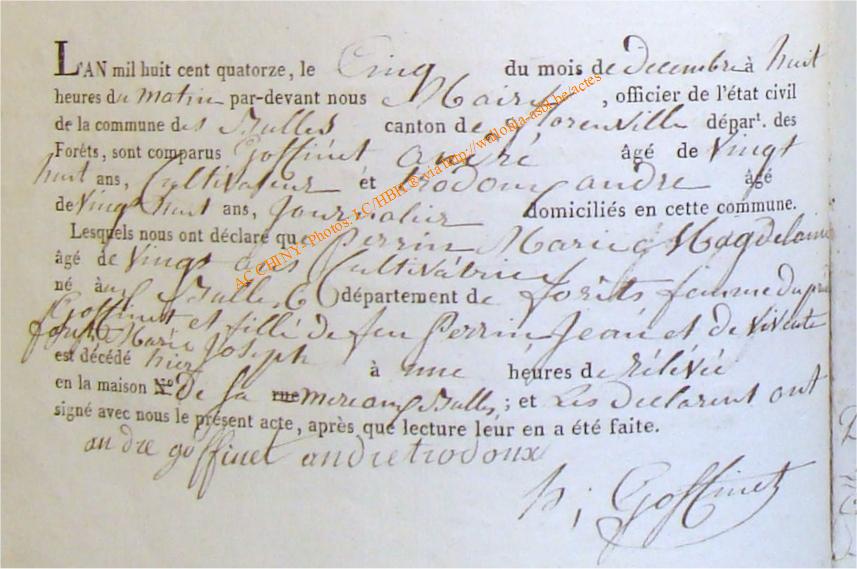 L'AN mil huit cent quatorze, le Cinq du mois de decembre à huit
heures du matin par-devant nous Maire, officier de l'état civil
de la commune des Bulles canton de florenville départ. des
Forêts, sont comparus Goffinet andré âgé de Vingt
huit ans, Cultivateur et trodoux andre âgé
de Vingt huit ans, journalier domiciliés en cette commune.
Lesquels nous ont déclaré que Perrin Marie Magdelaine
âgé de Vingt Cultivatrice
né à Bulles département de forêts femme du
Goffinet et fille de feu Perrin Jean et de vivente
Marie Joseph
est décédé hier à une heures de rélévé
en la maison N.º De sa rue mere aux Bulles, ; et Les Declarent ont
signé avec nous le présent acte, après que lecture leur en a été faite.
andre goffinet andre trodoux
h; Goffinet
AC CHINY - Photos: LC/HBH © via http://wallonia-asbl.be/actes